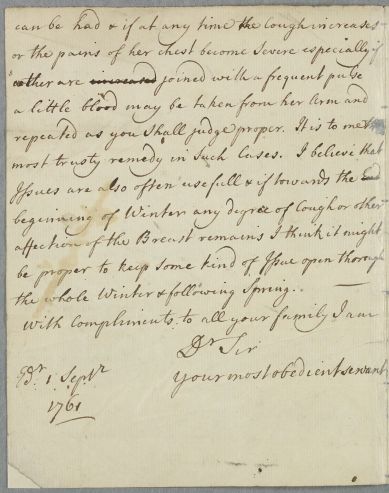 can be had & if at any time the Cough increases
or the pains of her chest become Severe especially if
either are increased joined with a frequent pulse
a little blood may be taken from her Arm and
repeated as you shall judge proper. It is to me the
most trusty remedy in Such Cases. I believe that
Issues are also often usefull & if towards the
beginning of Winter any degree of Cough or other
affection of the Breast remains I think it might
be proper to keep some kind of Issue open thorough
the whole Winter & following Spring. —
With Compliments to all your family I am
Dr Sir
Edr. 1 Septr
your most obedient servant
1761